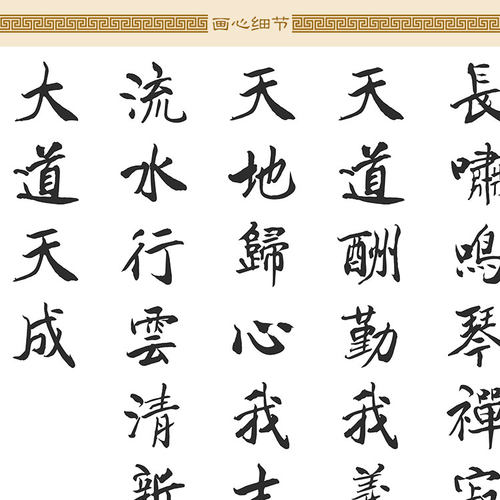 画心细节
長嘯鳴琴禪寂
天道酬勤我義
天地歸心我
流水行雲清新
大道天成